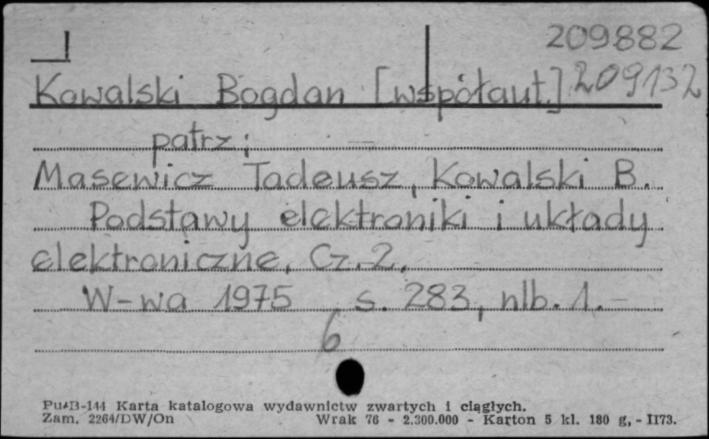 209882
Kowalski Bogdan [współaut.] 209132
patrz:
Masewicz Tadeusz, Kowalski B.
Podstawy elektroniki i układy
elektroniczne, Cz. 2.
W-wa 1975, s. 283, nlb. 1.-
6
Pu-B-144 Karta katalogowa wydawnictw zwartych i ciągłych.
Zam. 2264/DW/On Wrak 76 - 2.300.000 - Karton 5 kl. 180 g, - II73.